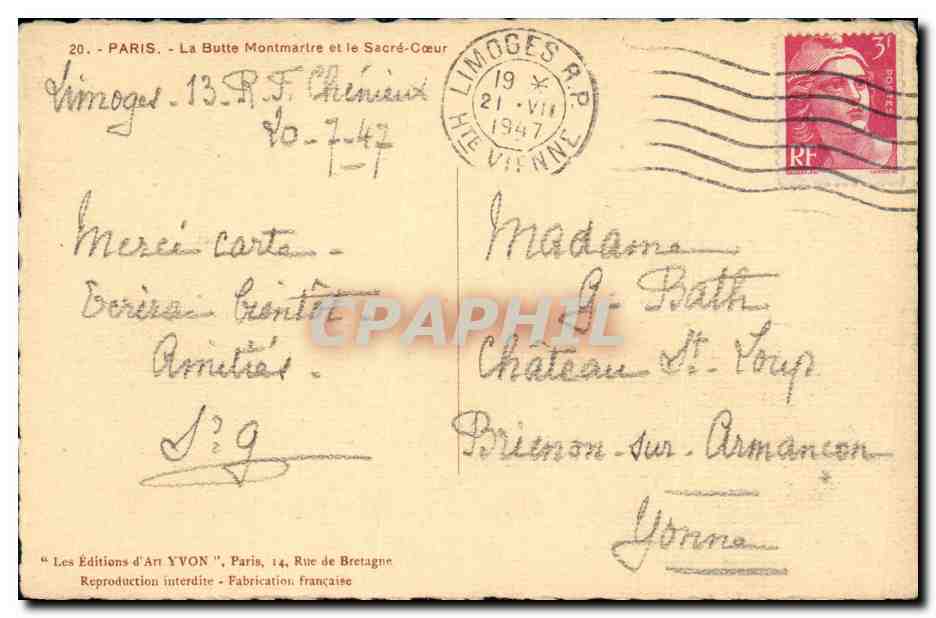 20. - PARIS. - La Butte Montmartre et le Sacré-Cœur
Limoges - 13 - R. F. Chénieux
20-7-47
Merci carte -
Ecrirai bientôt -
Amitiés -
LIMOGES R.P.
19 *
21 - VII
1947
HTE VIENNE
3F
POSTES
RF
Madame
G. Bath
Château St. Loup
Brienon-sur-Armançon
Yonne
CPAPHIL
" Les Éditions d'Art YVON ", Paris, 14, Rue de Bretagne
Reproduction interdite - Fabrication française